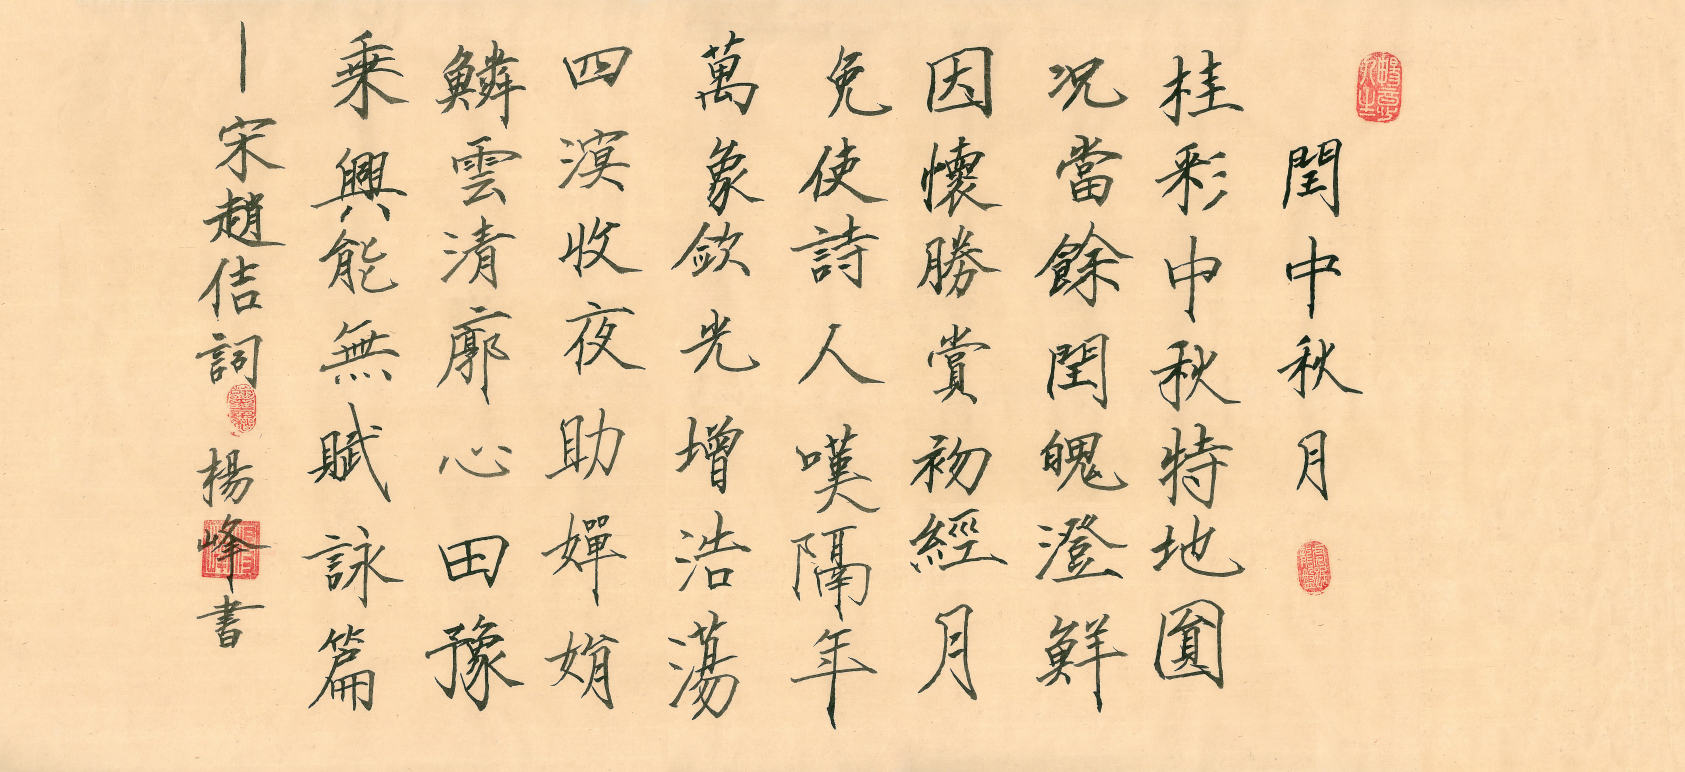 閏中秋月
桂彩中秋特地圓
况當餘閏魄澄鮮
因懷勝賞初經月
免使詩人嘆隔年
萬象歛光增浩蕩
四溟收夜助嬋娟
鱗雲清廓心田豫
乗興能無賦詠篇
—宋趙佶詞 楊峰書